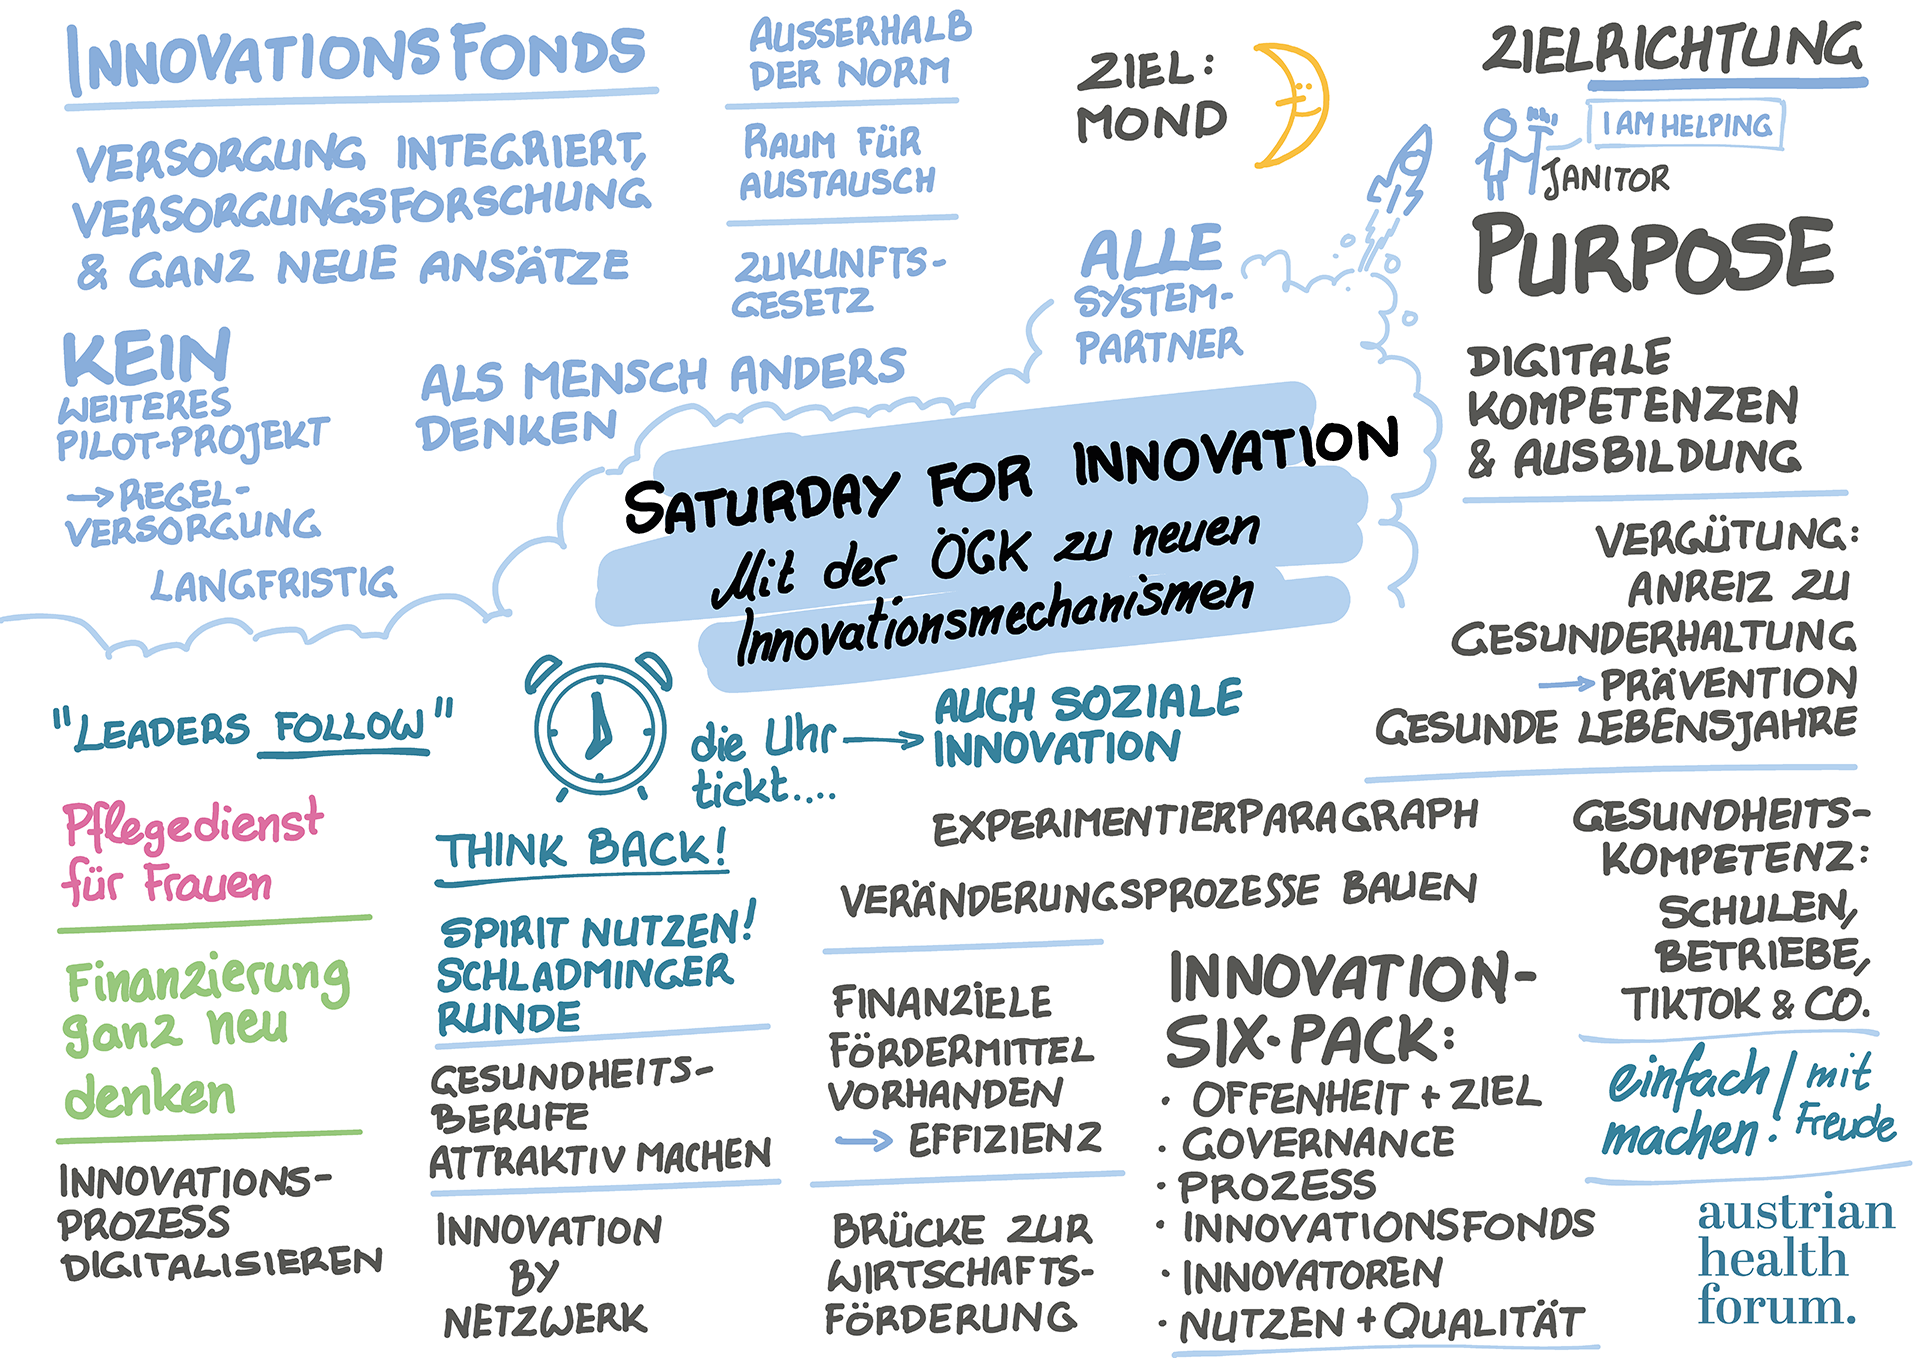 INNOVATIONSFONDS
VERSORGUNG INTEGRIERT,
VERSORGUNGSFORSCHUNG
& GANZ NEUE ANSÄTZE
KEIN
WEITERES
PILOT-PROJEKT
→ REGEL-
VERSORGUNG
LANGFRISTIG
AUSSERHALB
DER NORM
RAUM FÜR
AUSTAUSCH
ZUKUNFTS-
GESETZ
ALS MENSCH ANDERS
DENKEN
ZIEL:
MOND
ALLE
SYSTEM-
PARTNER
ZIELRICHTUNG
I AM HELPING
JANITOR
PURPOSE
DIGITALE
KOMPETENZEN
& AUSBILDUNG
VERGÜTUNG:
ANREIZ ZU
GESUNDERHALTUNG
→ PRÄVENTION
GESUNDE LEBENSJAHRE
SATURDAY FOR INNOVATION
Mit der ÖGK zu neuen
Innovationsmechanismen
"LEADERS FOLLOW"
die Uhr →
tickt....
AUCH SOZIALE
INNOVATION
Pflegedienst
für Frauen
Finanzierung
ganz neu
denken
INNOVATIONS-
PROZESS
DIGITALISIEREN
THINK BACK!
SPIRIT NUTZEN!
SCHLADMINGER
RUNDE
GESUNDHEITS-
BERUFE
ATTRAKTIV MACHEN
INNOVATION
BY
NETZWERK
EXPERIMENTIERPARAGRAPH
VERÄNDERUNGSPROZESSE BAUEN
FINANZIELE
FÖRDERMITTEL
VORHANDEN
→ EFFIZIENZ
BRÜCKE ZUR
WIRTSCHAFTS-
FÖRDERUNG
INNOVATION-
SIX-PACK:
· OFFENHEIT + ZIEL
· GOVERNANCE
· PROZESS
· INNOVATIONSFONDS
· INNOVATOREN
· NUTZEN + QUALITÄT
GESUNDHEITS-
KOMPETENZ:
SCHULEN,
BETRIEBE,
TIKTOK & CO.
einfach
machen!
mit
Freude
austrian
health
forum.